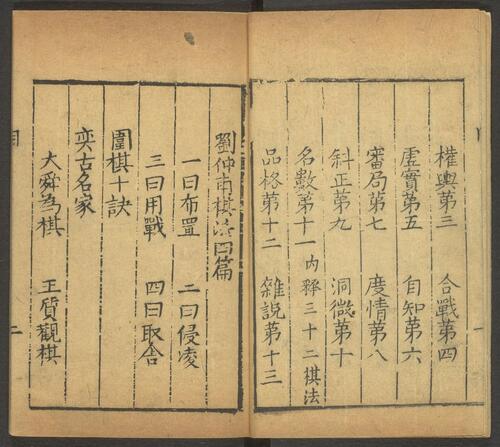 權輿第三 合戰第四
虛實第五 自知第六
審局第七 度情第八
斜正第九 洞微第十
名數第十一 內釋三十二棋法
品格第十二 雜說第十三
劉仲甫棋法四篇
一曰布置 二曰侵凌
三曰用戰 四曰取舍
圍棋十訣
奕古名家
大舜為棋 王質觀棋
二